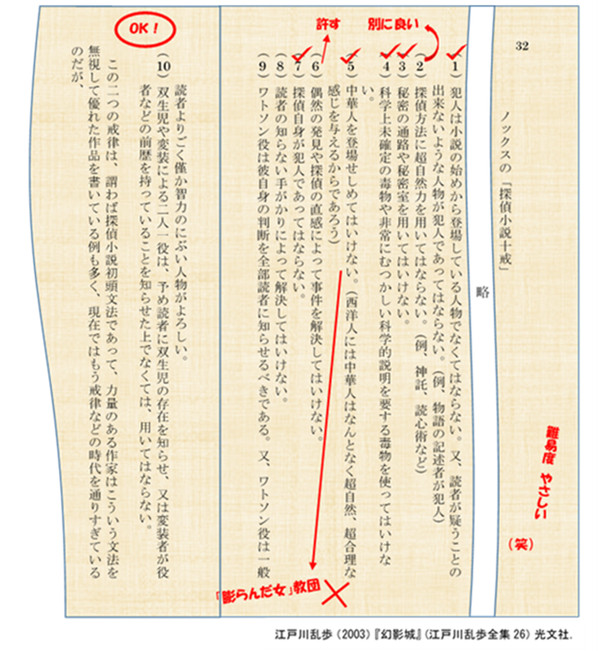 32
ノックスの「探偵小説十戒」
略
難易度 やさしい
(笑)
(1) 犯人は小説の始めから登場している人物でなくてはならない。又、読者が疑うことの
出来ないような人物が犯人であってはならない。(例、物語の記述者が犯人)
(2) 探偵方法に超自然力を用いてはならない。(例、神託、読心術など)
(3) 秘密の通路や秘密室を用いてはいけない。
(4) 科学上未確定の毒物や非常にむつかしい科学的説明を要する毒物を使ってはいけな
い。
(5) 中華人を登場せしめてはいけない。(西洋人には中華人はなんとなく超自然、超合理な
感じを与えるからであろう)
(6) 偶然の発見や探偵の直感によって事件を解決してはいけない。
(7) 探偵自身が犯人であってはならない。
(8) 読者の知らない手がかりによって解決してはいけない。
(9) ワトソン役は彼自身の判断を全部読者に知らせるべきである。又、ワトソン役は一般
別に良い
許す
「膨らんだ女」教団
読者よりごく僅か智力のにぶい人物がよろしい。
(10) 双生児や変装による二人一役は、予め読者に双生児の存在を知らせ、又は変装者が役
者などの前歴を持っていることを知らせた上でなくては、用いてはならない。
この二つの戒律は、謂わば探偵小説初頭文法であって、力量のある作家はこういう文法を
無視して優れた作品を書いている例も多く、現在ではもう戒律などの時代を通りすぎている
のだが、
OK!
江戸川乱歩 (2003)『幻影城』(江戸川乱歩全集 26) 光文社.